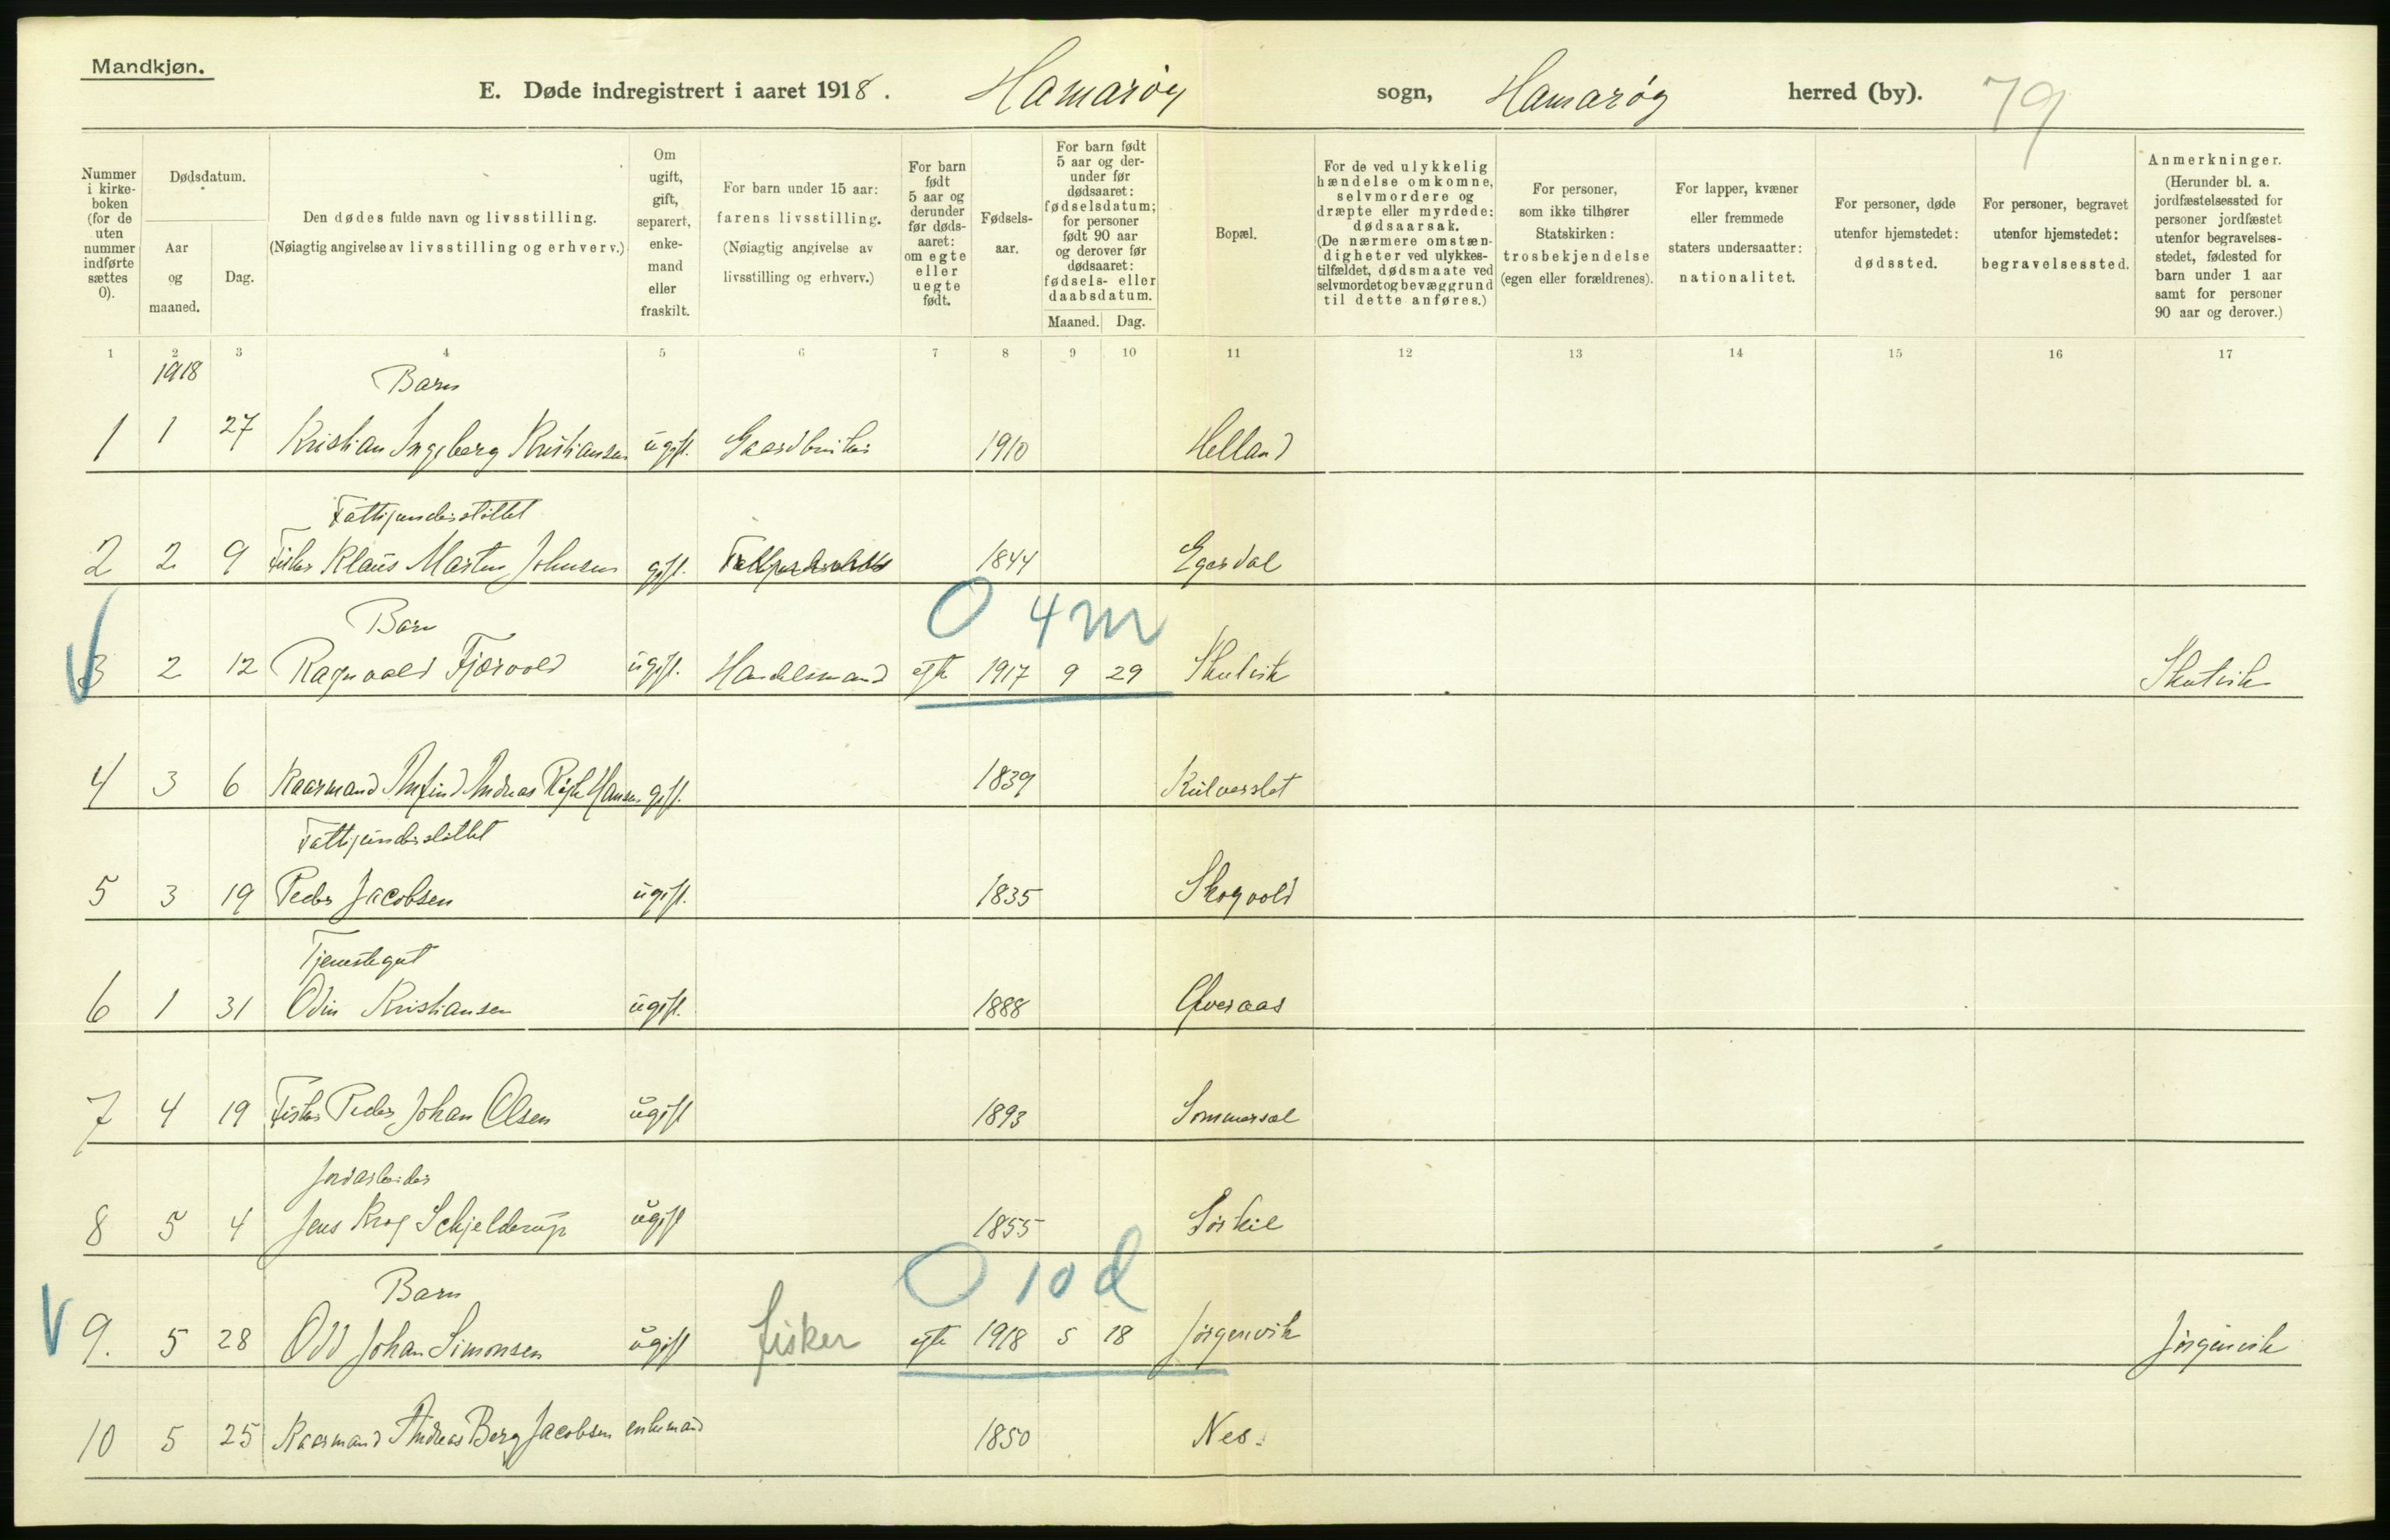 Mandkjøn.
E. Døde indregistrert i aaret 1918. Hamarøy sogn, Hamarøy herred (by). 79
Nummer i kirke-boken (for de uten nummer indførte sættes 0).
Dødsdatum.
Aar og maaned.
Dag.
Den dødes fulde navn og livsstilling.
(Nøiagtig angivelse av livsstilling og erhverv.)
Om ugift, gift, separert, enke-mand eller fraskilt.
For barn under 15 aar:
farens livsstilling.
(Nøiagtig angivelse av livsstilling og erhverv.)
For barn født 5 aar og derunder før døds-aaret: om egte eller uegte født.
Fødsels-aar.
For barn født 5 aar og der-under før dødsaaret: fødselsdatum; for personer født 90 aar og derover før dødsaaret: fødsels- eller daabsdatum.
Maaned. Dag.
Bopæl.
For de ved ulykkelig hændelse omkomne, selvmordere og dræpte eller myrdede: dødsaarsak.
(De nærmere omstæn-digheter ved ulykkes-tilfældet, dødsmaate ved selvmordet og bevæggrund til dette anføres.)
For personer, som ikke tilhører Statskirken: trosbekjendelse (egen eller forældrenes).
For lapper, kvæner eller fremmede staters undersaatter: nationalitet.
For personer, døde utenfor hjemstedet: dødssted.
For personer, begravet utenfor hjemstedet: begravelsessted.
Anmerkninger.
(Herunder bl. a. jordfæstelsessted for personer jordfæstet utenfor begravelses-stedet, fødested for barn under 1 aar samt for personer 90 aar og derover.)
1 2 3 4 5 6 7 8 9 10 11 12 13 14 15 16 17
1918
Barn
1 1 27 Kristian Ingeberg Kristiansen ugift. Gaardbruker 1910 Helland
Fattigunderstøttet
2 2 9 Fisker Klaus Martin Johnsen gift. 1844 Egerdal
0 4 m
Barn
3 2 12 Ragnvald Fjærvold ugift. Handelsmand egte 1917 9 29 Skutvik Skutvik
4 3 6 Kaarmand Andreas Hansen gift. 1839
Fattigunderstøttet
5 3 19 Peder Jacobsen ugift. 1835 Skogvold
Tjenestegut
6 1 31 Odin Kristiansen ugift. 1888
7 4 19 Fisker Peder Johan Olsen ugift 1893 Sommersel
Jordarbeider
8 5 4 Jens Krog Schjelderup ugift 1855
0 10 d
Barn
9. 5 28 Odd Johan Simonsen ugift fisker egte 1918 5 18 Jørgenvik Jørgenvik
10 5 25 Kaarmand Andreas Berg Jacobsen enkemand 1850 Nes.